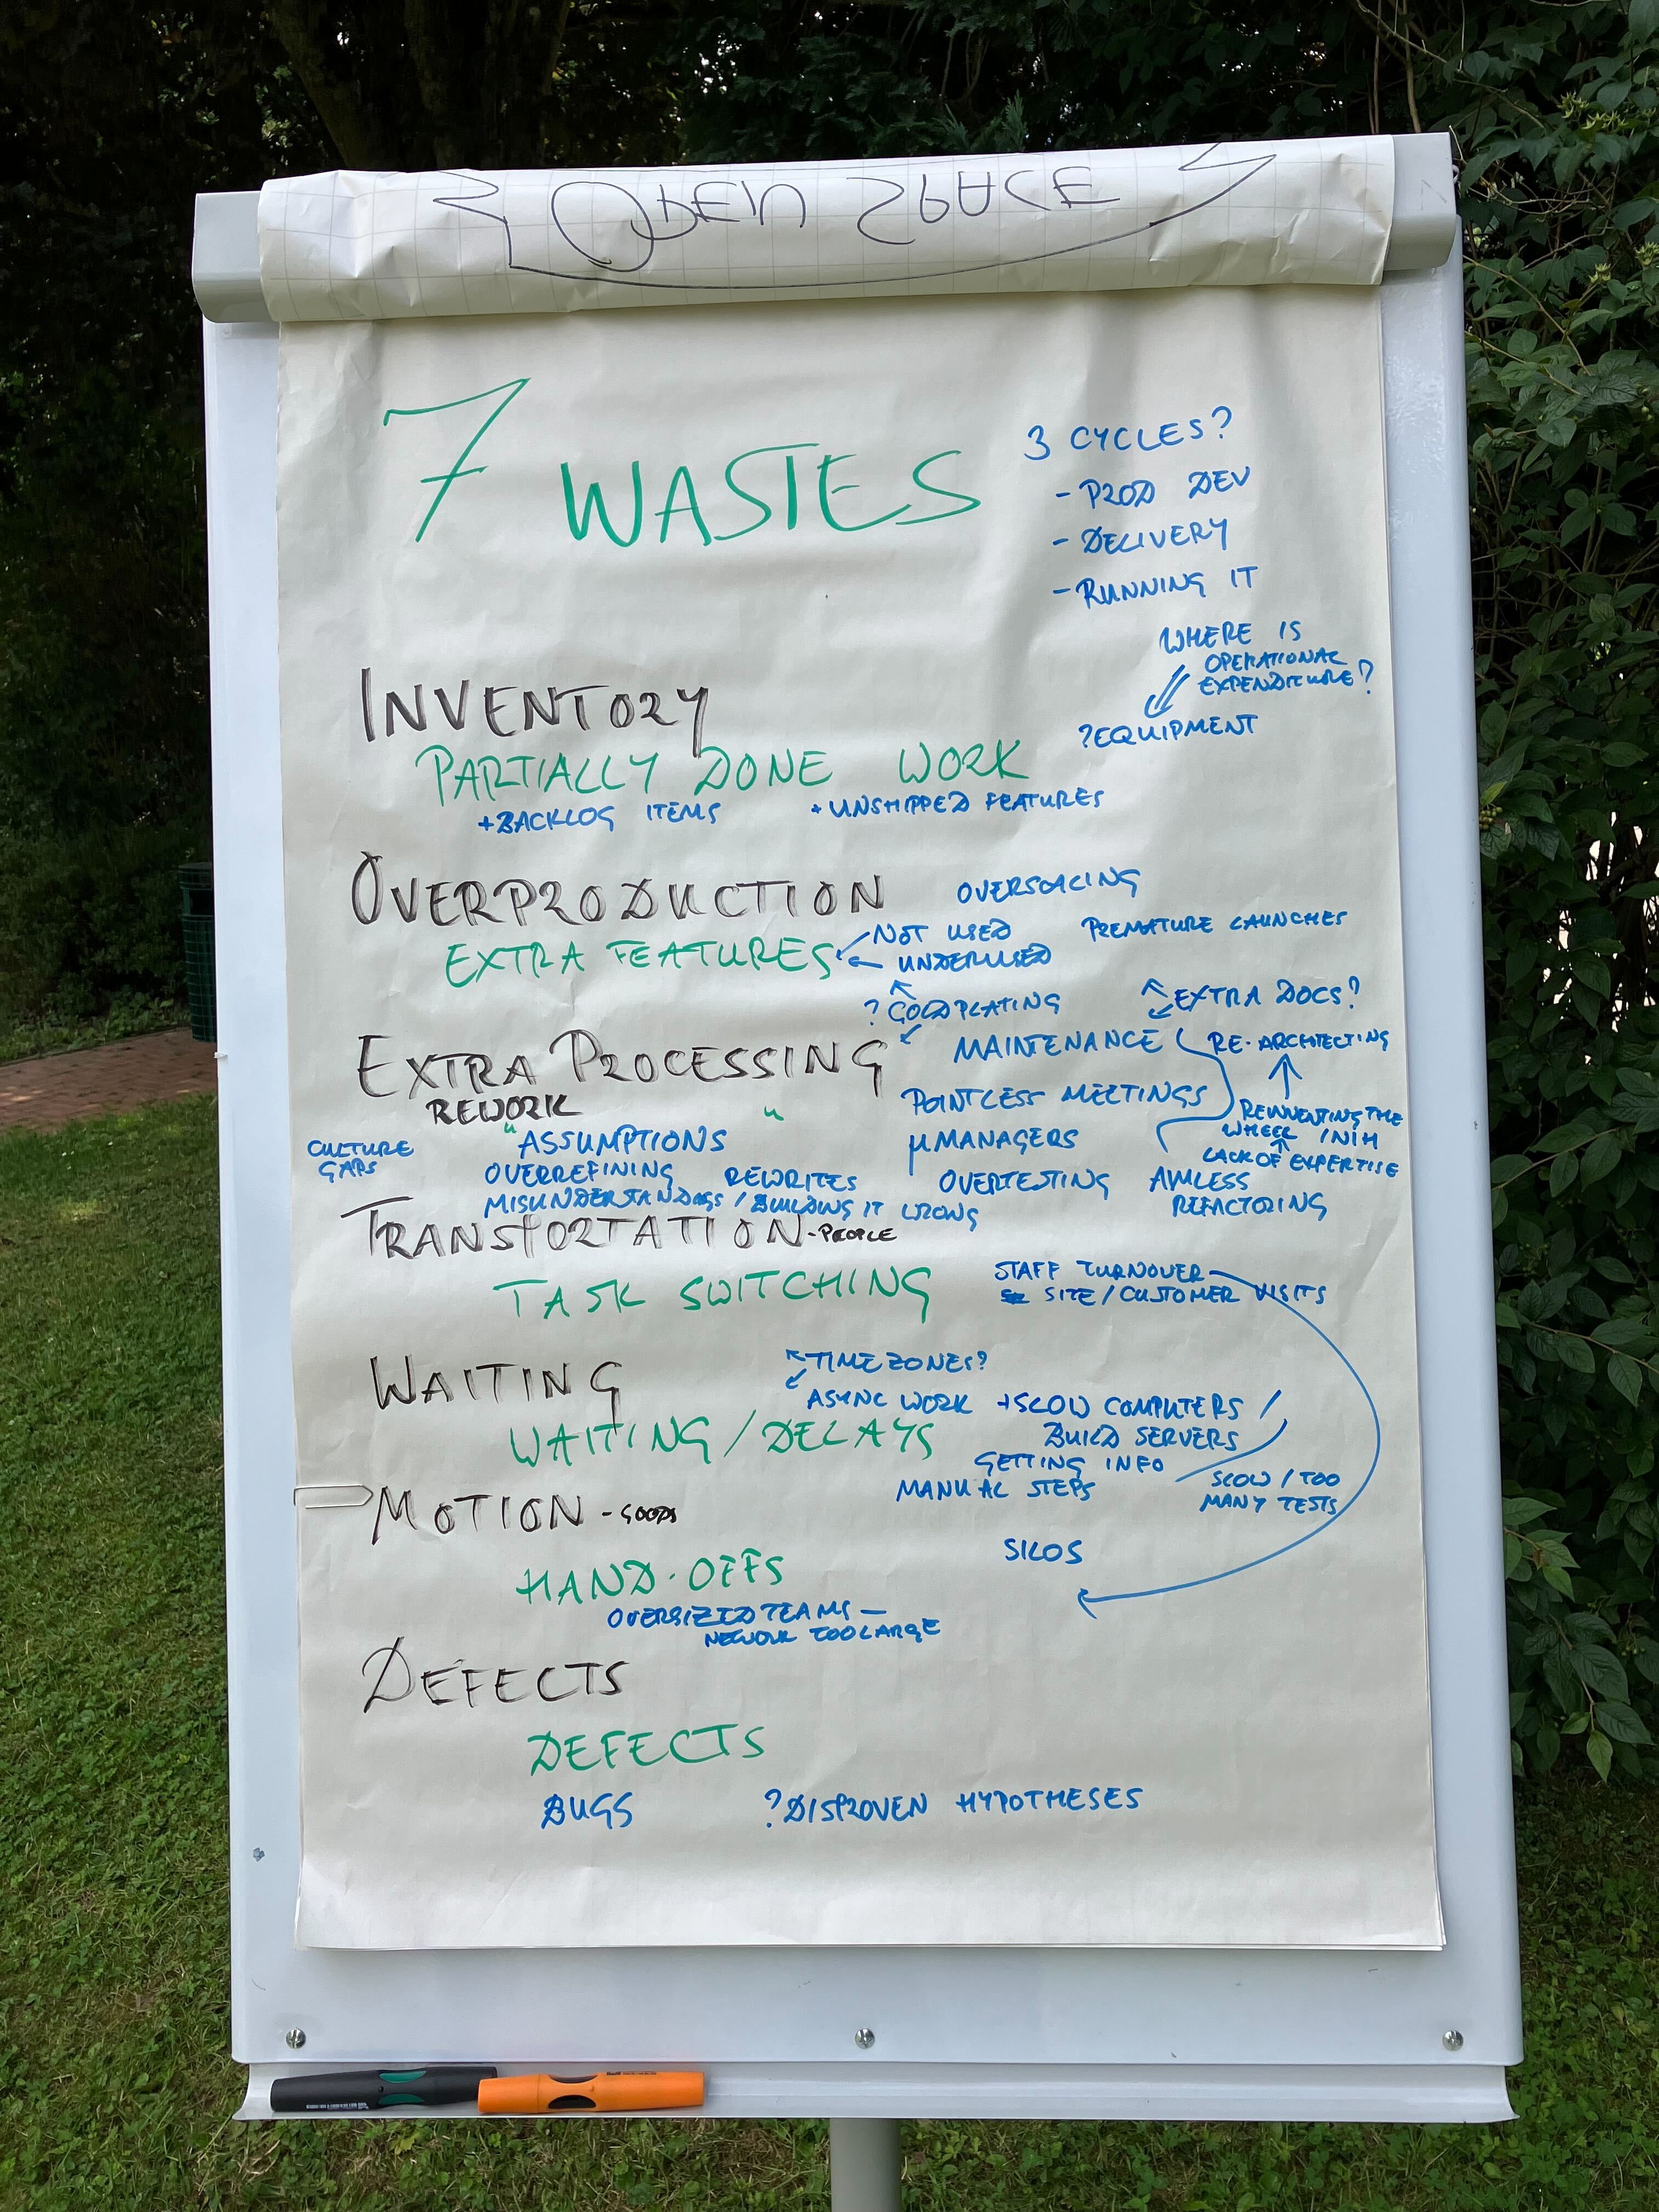 OPEN SPACE
7 WASTES
3 CYCLES?
- PROD DEV
- DELIVERY
- RUNNING IT
WHERE IS
OPERATIONAL
EXPENDITURE?
?EQUIPMENT
INVENTORY
PARTIALLY DONE WORK
+BACKLOG ITEMS + UNSHIPPED FEATURES
OVERPRODUCTION OVERSCALING
EXTRA FEATURES NOT USED PREMATURE LAUNCHES
UNDERUSED
? GOLDPLATING EXTRA DOCS?
EXTRA PROCESSING MAINTENANCE RE-ARCHITECTING
REWORK " POINTLESS MEETINGS REINVENTING THE
WHEEL / NIH
LACK OF EXPERTISE
CULTURE
GAPS
" ASSUMPTIONS µMANAGERS
OVERREFINING REWRITES OVERTESTING AIMLESS
REFACTORING
MISUNDERSTANDINGS / BUILDING IT WRONG
TRANSPORTATION - PEOPLE
TASK SWITCHING STAFF TURNOVER
SITE / CUSTOMER VISITS
WAITING TIME ZONES?
ASYNC WORK +SLOW COMPUTERS /
WAITING / DELAYS BUILD SERVERS
GETTING INFO
MANUAL STEPS SLOW / TOO
MANY TESTS
MOTION - GOODS
SILOS
HAND-OFFS
OVERSIZED TEAMS —
NETWORK TOO LARGE
DEFECTS
DEFECTS
BUGS ?DISPROVEN HYPOTHESES